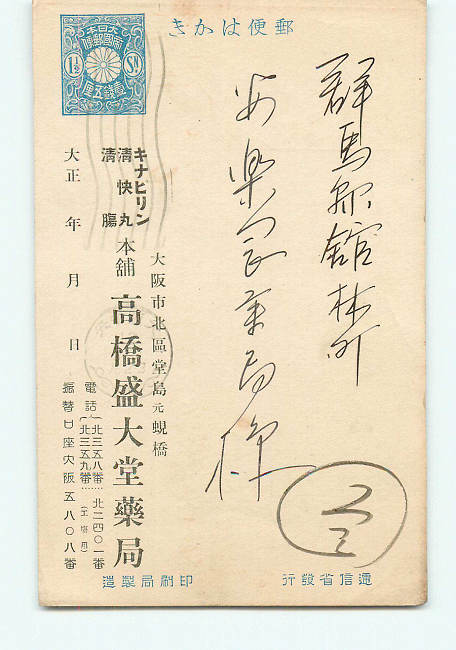 郵便はがき
大日本
帝國郵便
1½ Sⁿ
壹錢五厘
群馬縣舘林町
安樂岡薬局様
大阪市北區堂島元蜆橋
キナピリン
清快丸
清腸
本舖
高橋盛大堂藥局
電話
北三五八番
北三五九番
北二四〇一番
振替口座大阪五八〇八番
大正 年 月 日
遞信省發行
印刷局製造